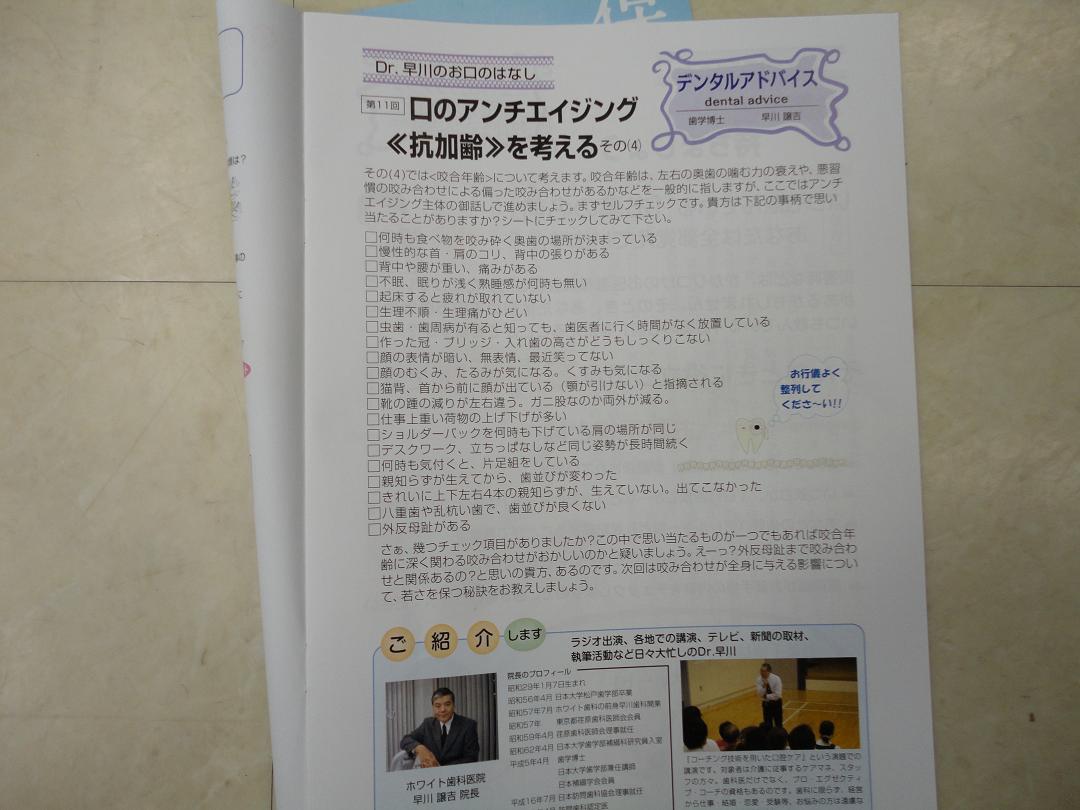 Dr. 早川のお口のはなし
第11回 口のアンチエイジング
≪抗加齢≫を考える その(4)
デンタルアドバイス
dental advice
歯学博士 早川 譲吉
その(4)では<咬合年齢>について考えます。咬合年齢は、左右の奥歯の噛む力の衰えや、悪習
慣の咬み合わせによる偏った咬み合わせがあるかなどを一般的に指しますが、ここではアンチ
エイジング主体の御話しで進めましょう。まずセルフチェックです。貴方は下記の事柄で思い
当たることがありますか?シートにチェックしてみて下さい。
□何時も食べ物を咬み砕く奥歯の場所が決まっている
□慢性的な首・肩のコリ、背中の張りがある
□背中や腰が重い、痛みがある
□不眠、眠りが浅く熟睡感が何時も無い
□起床すると疲れが取れていない
□生理不順・生理痛がひどい
□虫歯・歯周病が有ると知っても、歯医者に行く時間がなく放置している
□作った冠・ブリッジ・入れ歯の高さがどうもしっくりこない
□顔の表情が暗い、無表情、最近笑ってない
□顔のむくみ、たるみが気になる。くすみも気になる
□猫背、首から前に顔が出ている(顎が引けない)と指摘される
□靴の踵の減りが左右違う。ガニ股なのか両外が減る。
□仕事上重い荷物の上げ下げが多い
□ショルダーバックを何時も下げている肩の場所が同じ
□デスクワーク、立ちっぱなしなど同じ姿勢が長時間続く
□何時も気付くと、片足組をしている
□親知らずが生えてから、歯並びが変わった
□きれいに上下左右4本の親知らずが、生えていない。出てこなかった
□八重歯や乱杭い歯で、歯並びが良くない
□外反母趾がある
お行儀よく
整列して
くださ〜い!!
さぁ、幾つチェック項目がありましたか?この中で思い当たるものが一つでもあれば咬合年
齢に深く関わる咬み合わせがおかしいのかと疑いましょう。えーっ?外反母趾まで咬み合わ
せと関係あるの?と思いの貴方、あるのです。次回は咬み合わせが全身に与える影響につい
て、若さを保つ秘訣をお教えしましょう。
ご紹介します
ラジオ出演、各地での講演、テレビ、新聞の取材、
執筆活動など日々大忙しのDr.早川
院長のプロフィール
昭和29年1月7日生まれ
昭和56年4月 日本大学松戸歯学部卒業
昭和57年7月 ホワイト歯科の前身早川歯科開業
昭和57年 東京都荏原歯科医師会会員
昭和59年4月 荏原歯科医師会理事就任
昭和62年4月 日本大学歯学部補綴科研究員入室
平成5年4月 歯学博士
日本大学歯学部兼任講師
日本補綴学会会員
平成16年7月 日本訪問歯科協会理事就任
訪問歯科認定医
ホワイト歯科医院
早川 譲吉 院長
『コーチング技術を用いた口腔ケア』という演題での
講演です。対象者は介護に従事するケアマネ、スタッ
フの方々。歯科医だけでなく、プロ・エグゼクティ
ブ・コーチの資格もあるのです。歯科に限らず、経営
から仕事・結婚・恋愛・受験等、お悩みの方は遠慮な